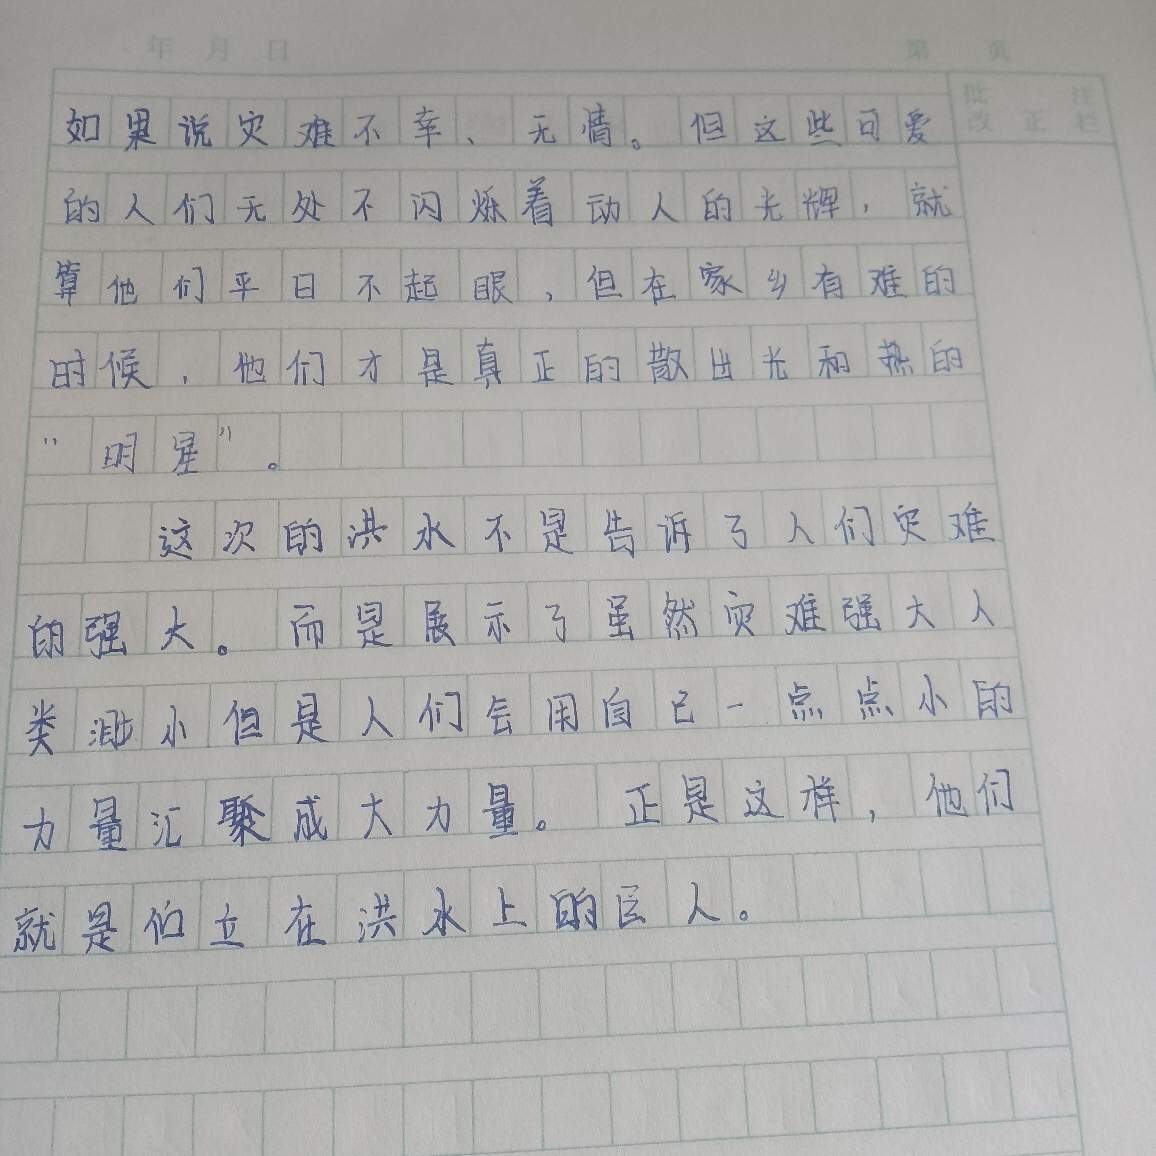 年 月 日
第 页
批 注
改 正 栏
如果说灾难不幸、无情。但这些可爱
的人们无处不闪烁着动人的光辉，就
算他们平日不起眼，但在家乡有难的
时候，他们才是真正的散出光和热的
“明星”。
这次的洪水不是告诉了人们灾难
的强大。而是展示了虽然灾难强大人
类渺小但是人们会用自己一点点小的
力量汇聚成大力量。正是这样，他们
就是伫立在洪水上的巨人。